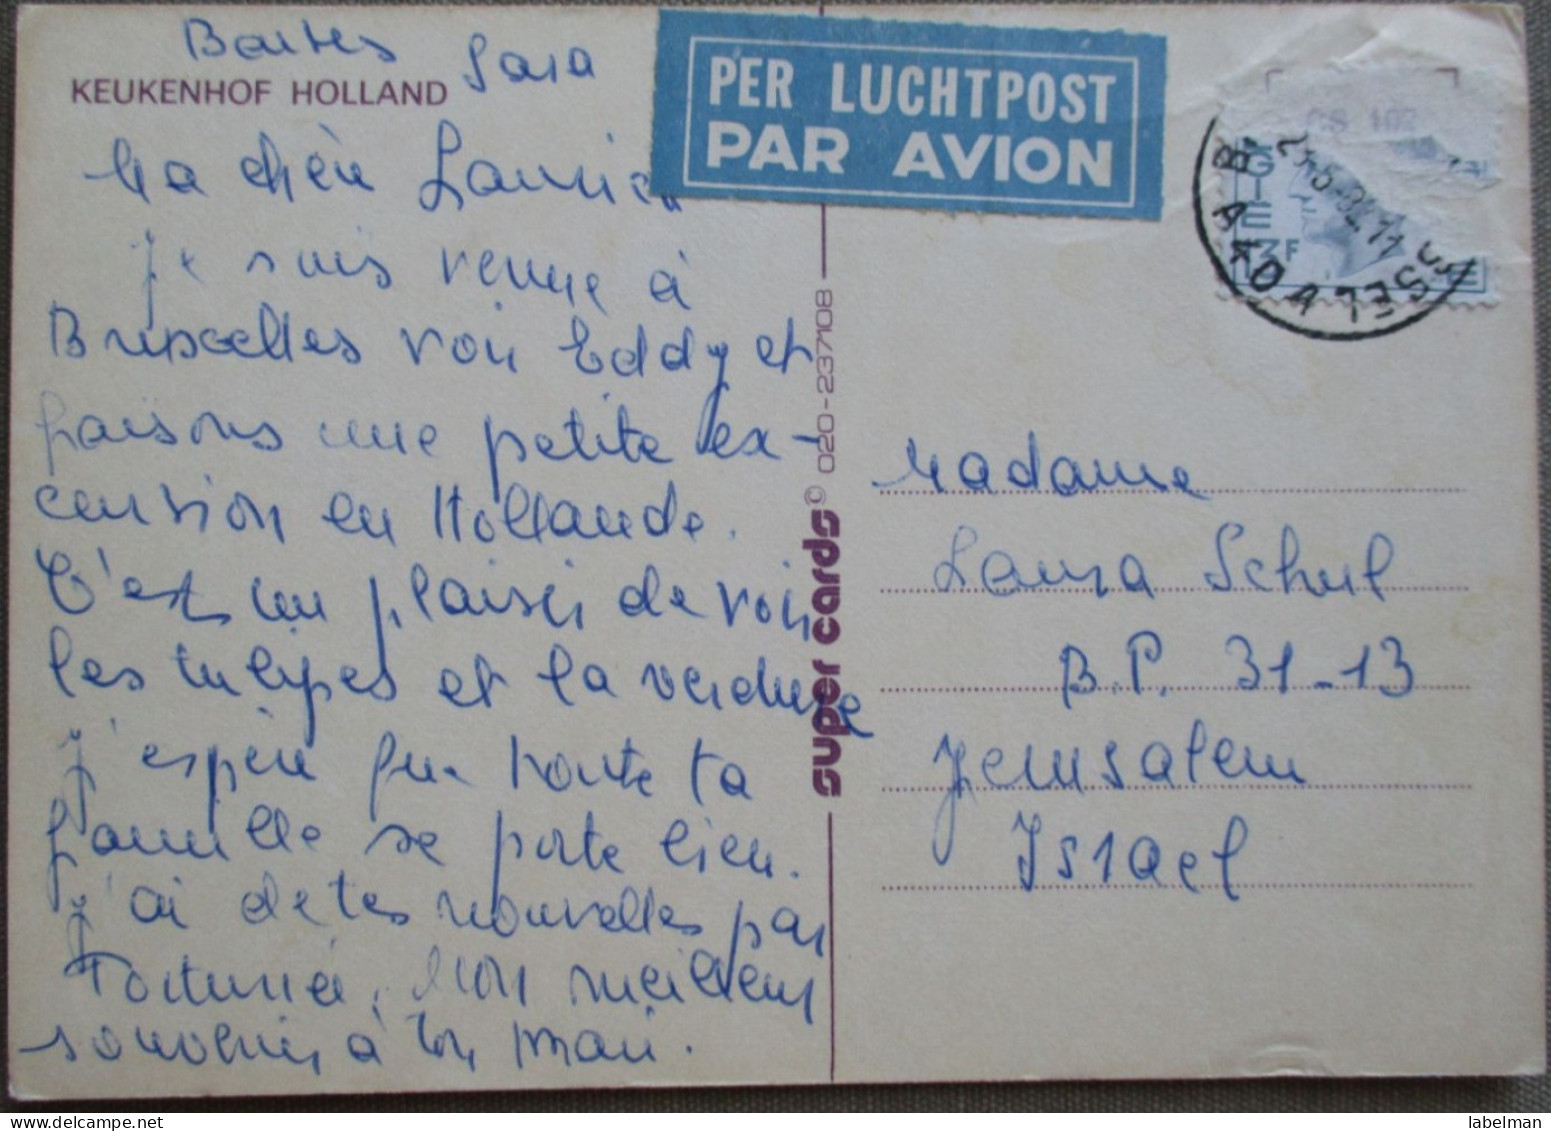 Baisers Sara
KEUKENHOF HOLLAND
PER LUCHTPOST
PAR AVION
Ma chère
Je suis venue à
Bruxelles voir Eddy et
faisons une petite ex-
cursion en Hollande.
C'est un plaisir de voir
les tulipes et la verdure
J'espère que toute ta
famille se porte bien.
J'ai de tes nouvelles par
Fortunée, Mon meilleur
souvenir à ton mari.
super cards © 020-237108
BELGIE
3F
Madame
Laura Schul
B.P. 31-13
Jerusalem
Israel
labelman
delcampe.net